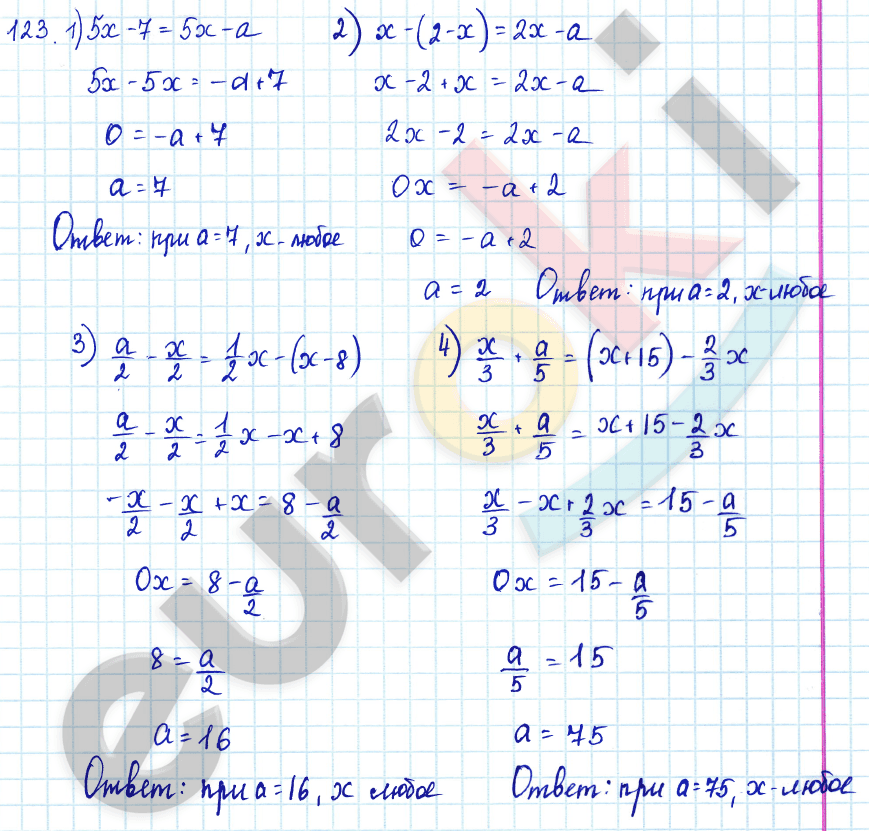 123. 1) 5x - 7 = 5x - a
5x - 5x = -a + 7
0 = -a + 7
a = 7
Ответ: при a = 7, x - любое
2) x - (2 - x) = 2x - a
x - 2 + x = 2x - a
2x - 2 = 2x - a
0x = -a + 2
0 = -a + 2
a = 2 Ответ: при a = 2, x - любое
3) a/2 - x/2 = 1/2 x - (x - 8)
a/2 - x/2 = 1/2 x - x + 8
-x/2 - x/2 + x = 8 - a/2
0x = 8 - a/2
8 = a/2
a = 16
Ответ: при a = 16, x любое
4) x/3 + a/5 = (x + 15) - 2/3 x
x/3 + a/5 = x + 15 - 2/3 x
x/3 - x + 2/3 x = 15 - a/5
0x = 15 - a/5
a/5 = 15
a = 75
Ответ: при a = 75, x - любое
euroki